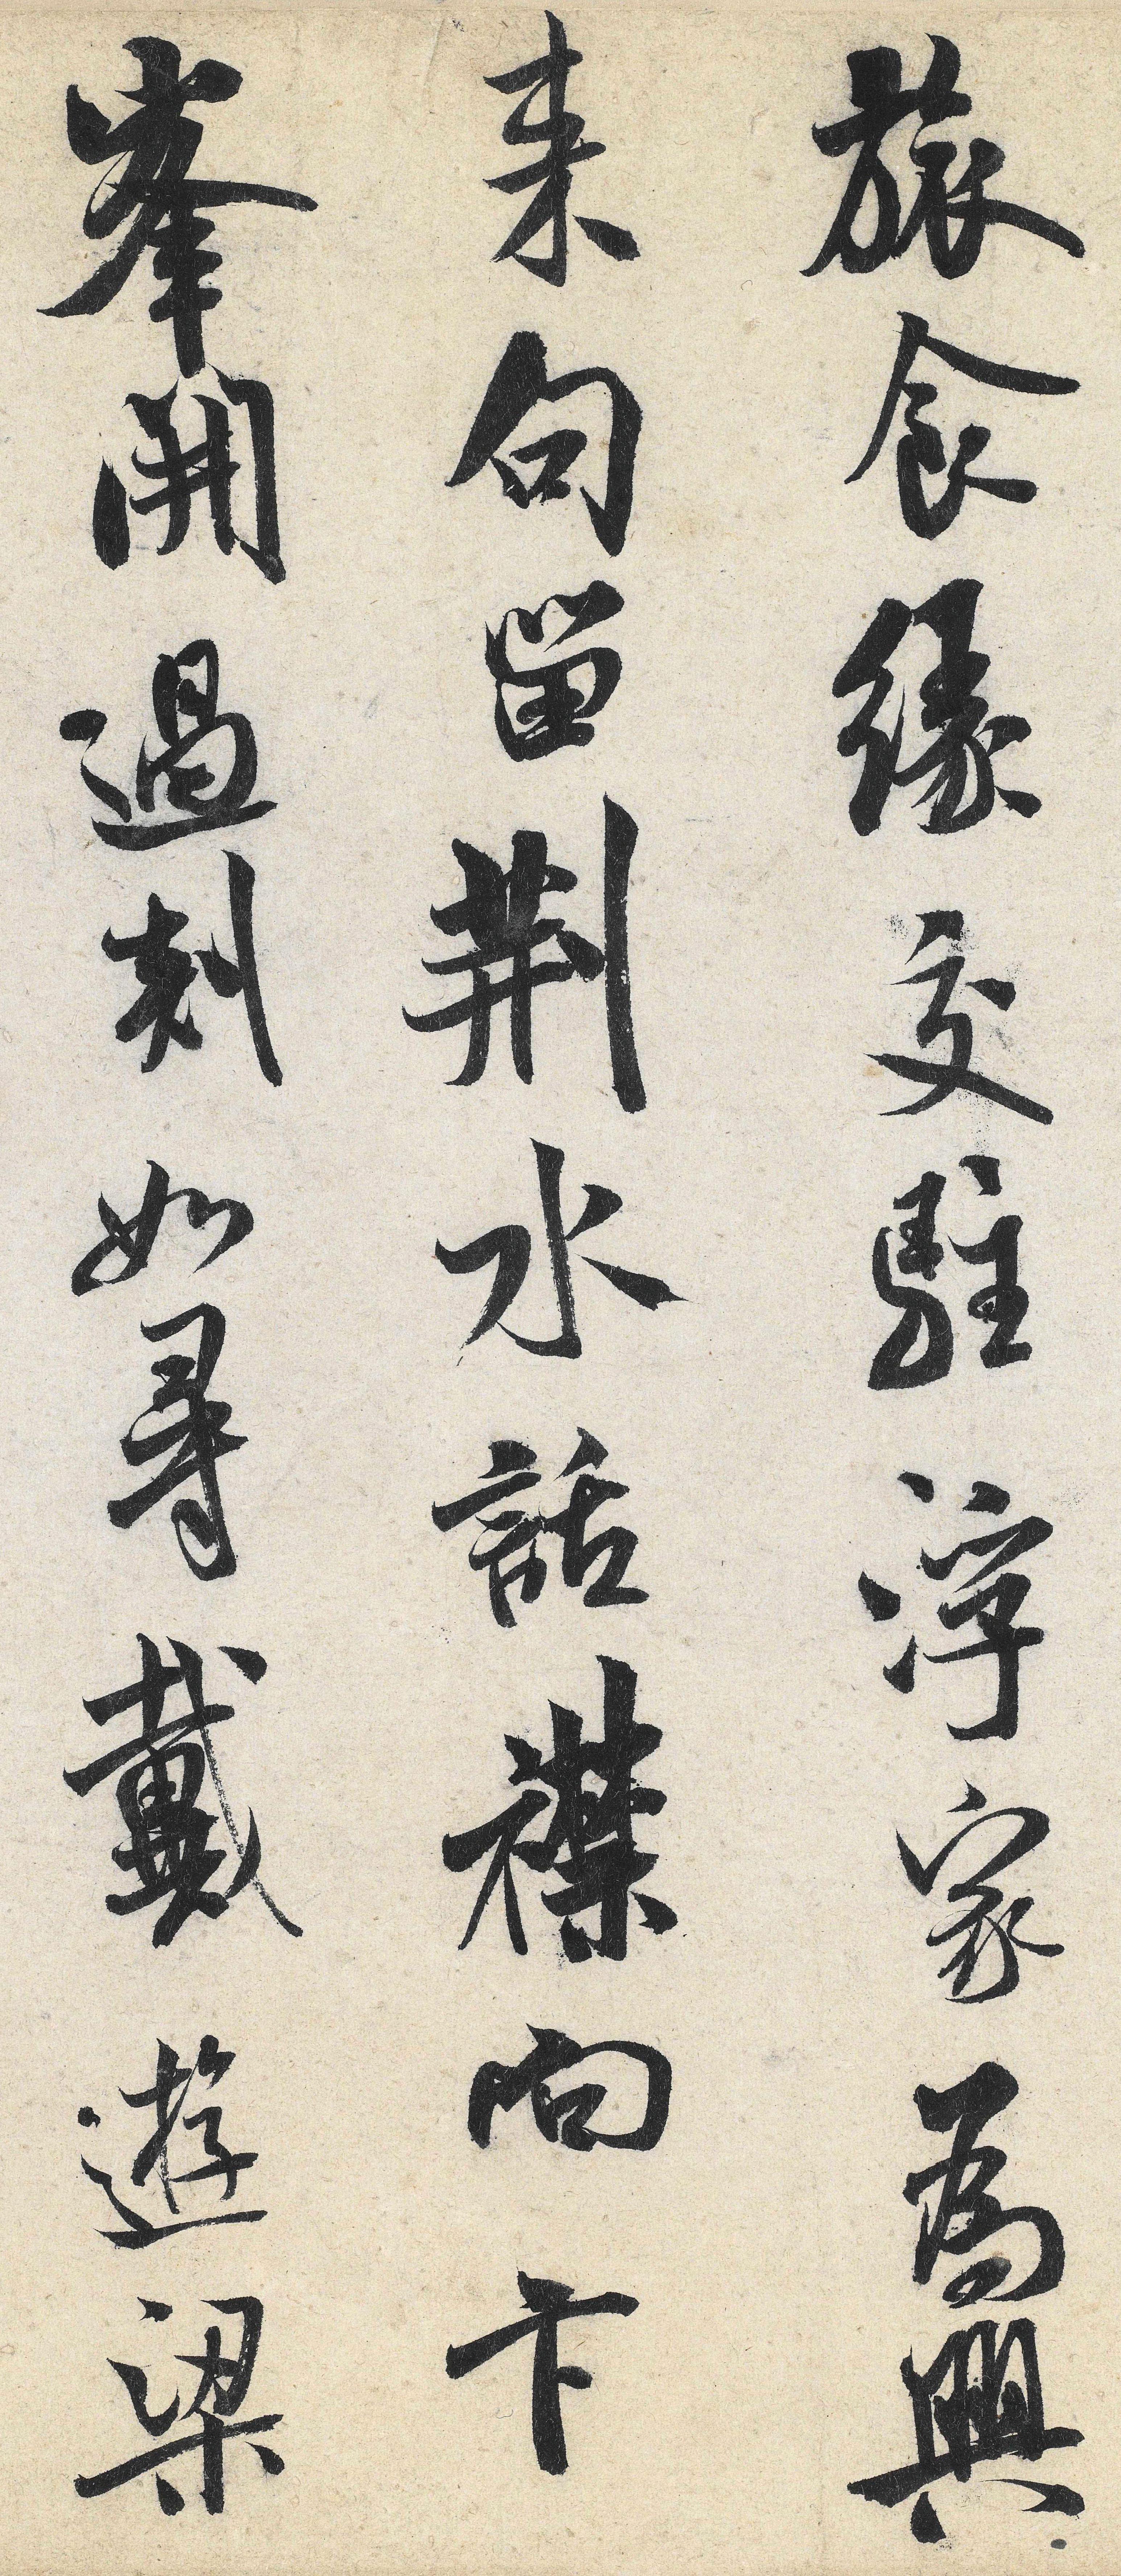 旅食緣交駐浮家為興
来句留荆水話襟向卞
峯開過剡如尋戴遊梁